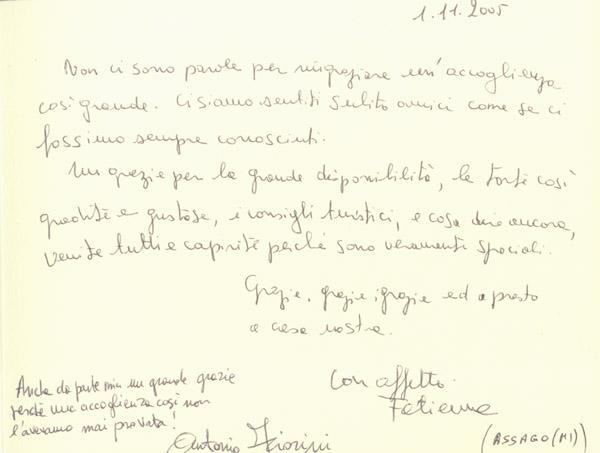 1.11.2005
Non ci sono parole per ringraziare un'accoglienza
così grande. Ci siamo sentiti subito amici come se ci
fossimo sempre conosciuti.
Un grazie per la grande disponibilità, le torte così
gradite e gustose, i consigli turistici, e cosa dire ancora,
venite tutti e capirete perché sono veramente speciali.
Grazie, grazie, grazie ed a presto
a casa nostra.
Con affetto.
Anche da parte mia un grande grazie
perché una accoglienza così non
l'avevamo mai provata!
Antonio Fiorini
(ASSAGO (MI))